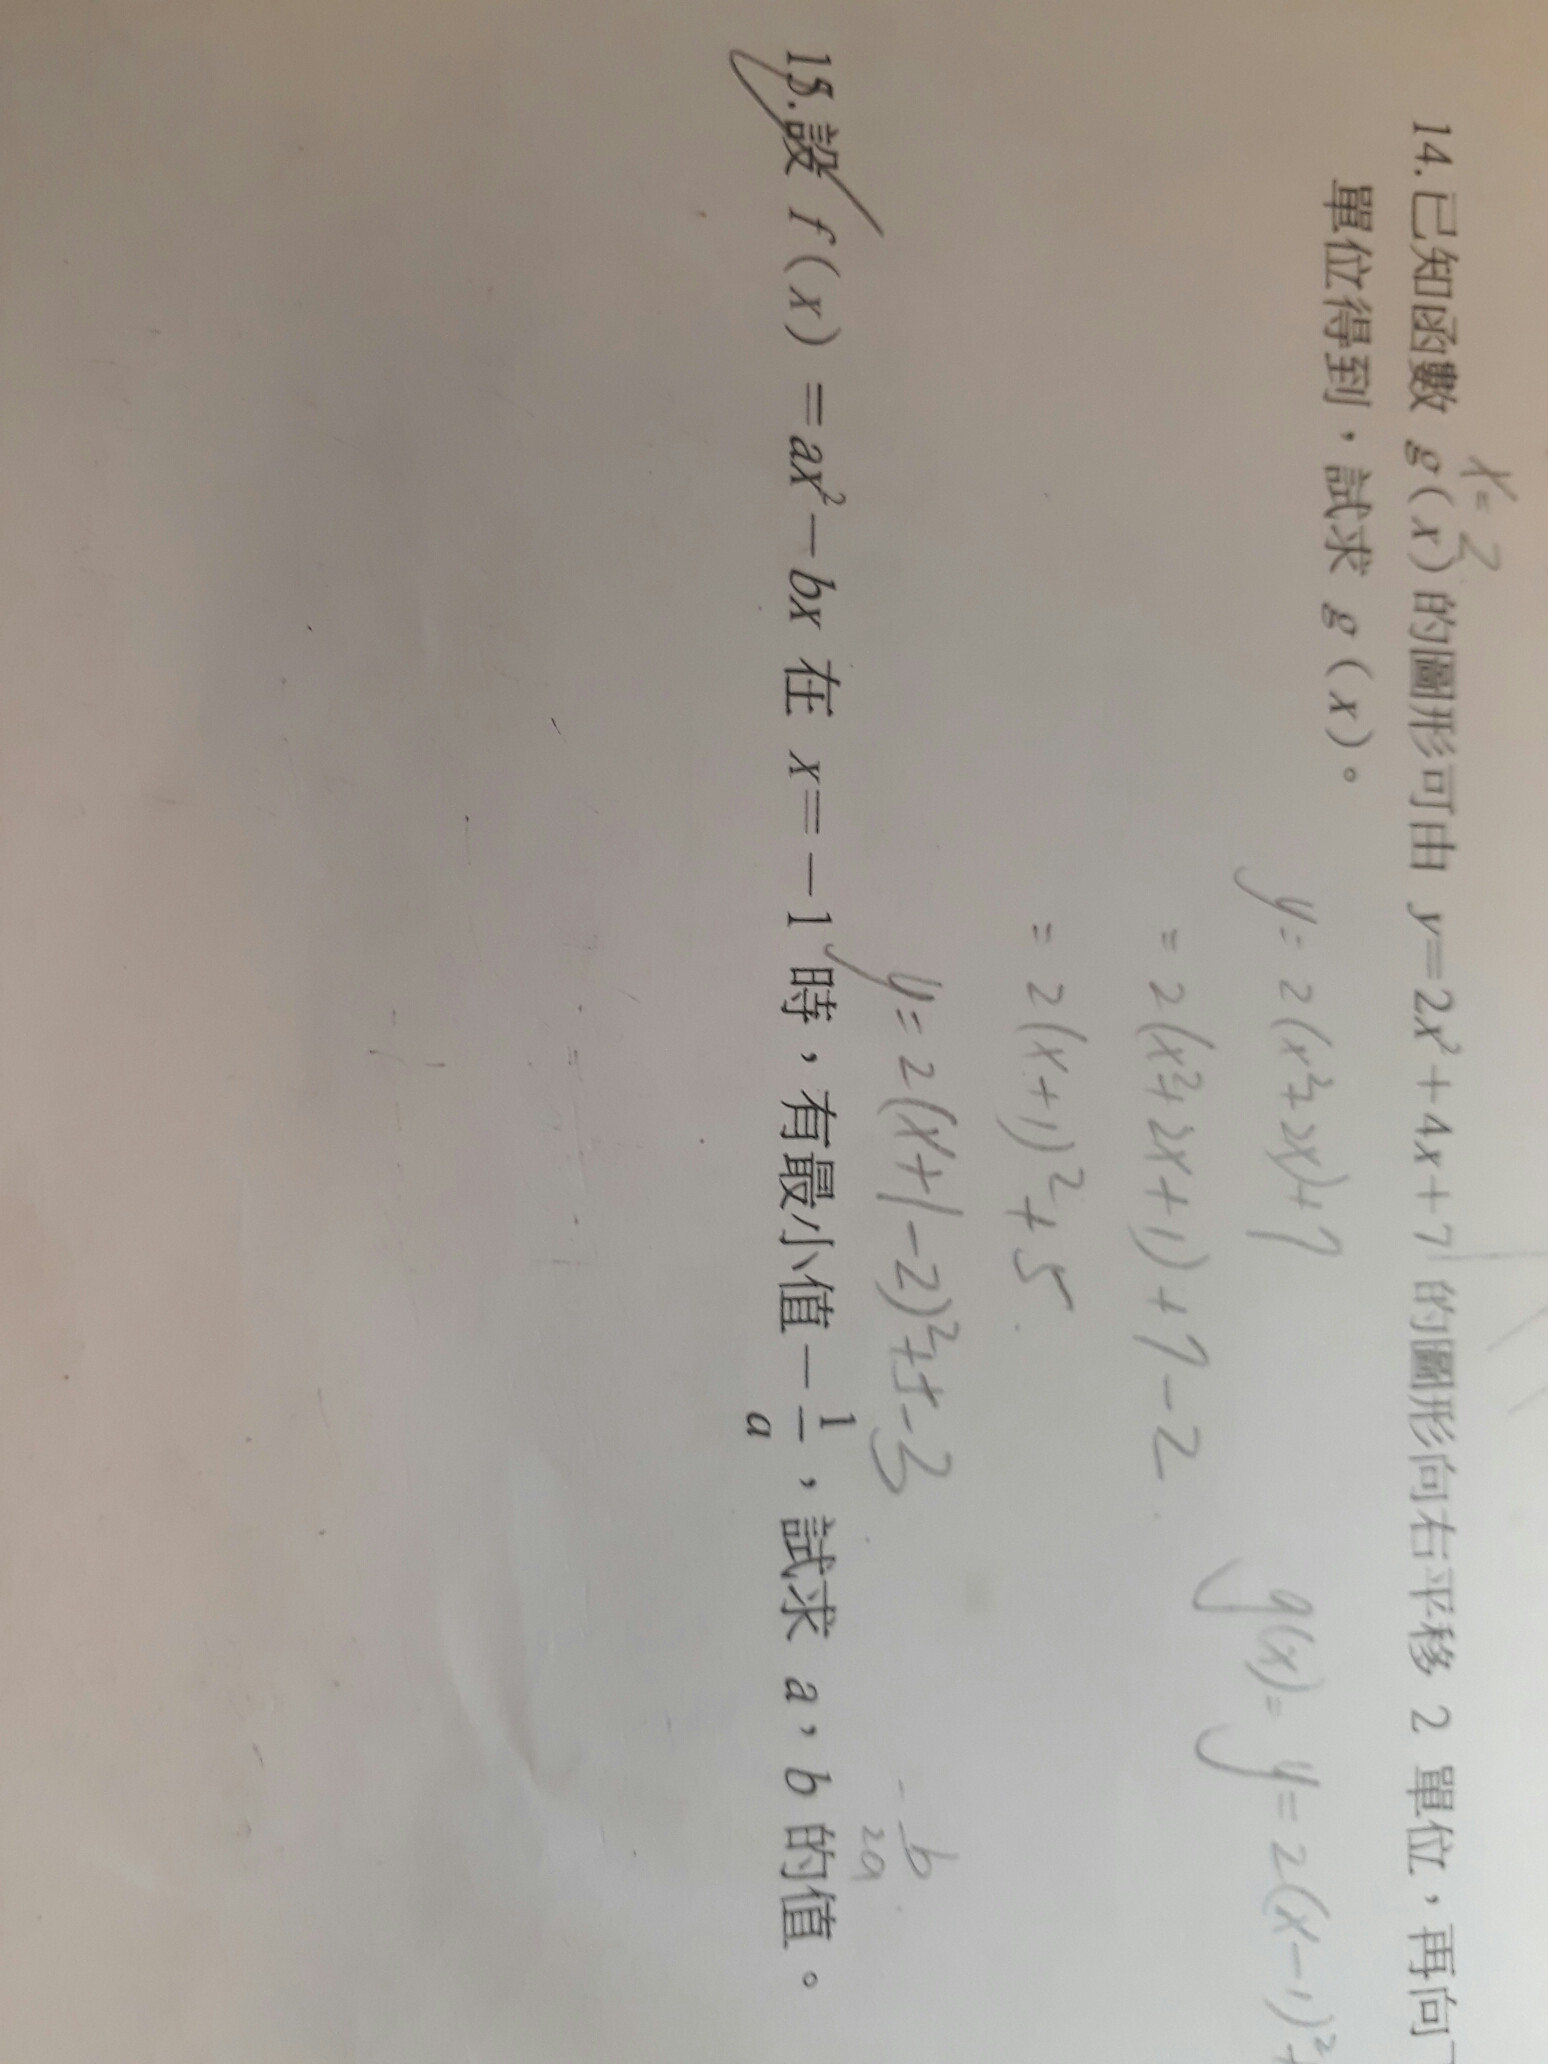 x=2
14.已知函數 g(x)的圖形可由 y=2x²+4x+7 的圖形向右平移 2 單位，再向
單位得到，試求 g(x)。
y=2(x²+2x)+7
g(x)=y=2(x-1)²+
=2(x²+2x+1)+7-2
=2(x+1)²+5
y=2(x+1-2)²+5-3
-b
2a
15.設 f(x)=ax²-bx 在 x=-1 時，有最小值-1/a，試求 a，b 的值。